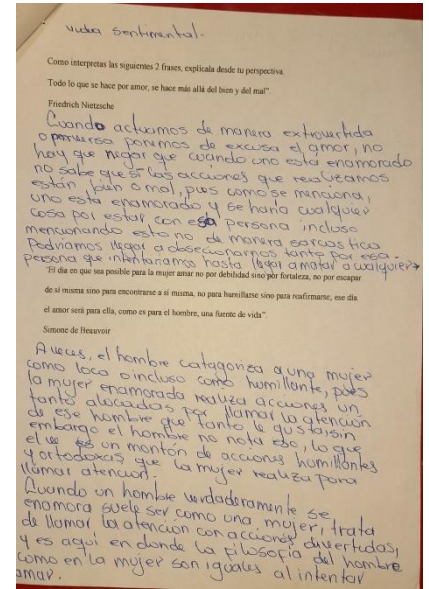 vida sentimental.
Como interpretas las siguientes 2 frases, explícala desde tu perspectiva.
Todo lo que se hace por amor, se hace más allá del bien y del mal".
Friedrich Nietzsche
Cuando actuamos de manera extrovertida
o perversa ponemos de excusa el amor, no
hay que negar que cuando uno está enamorado
no sabe que si las acciones que realizamos
están, bien o mal, pues como se menciona,
uno esta enamorado y se haria cualquier
cosa por estar con esa persona incluso
mencionando esto no de manera sarcastica
Podriamos llegar a obsecionarnos tanto por esa
persona que intentariamos hasta llegar a matar a cualquier→
"El día en que sea posible para la mujer amar no por debilidad sino por fortaleza, no por escapar
de sí misma sino para encontrarse a sí misma, no para humillarse sino para reafirmarse, ese día
el amor será para ella, como es para el hombre, una fuente de vida".
Simone de Beauvoir
A veces, el hombre catagoriza a una mujer
como loca o incluso como humillante, pues
la mujer enamorada realiza acciones un
tanto alocadas por llamar la atención
de ese hombre que tanto le gusta, sin
embargo el hombre no nota eso, lo que
el ve es un montón de acciones humillantes
y ortodoxas que la mujer realiza para
llamar atención.
Cuando un hombre verdaderamente se
enamora suele ser como una mujer, trata
de llamar la atención con acciones divertidas,
y es aqui en donde la filosofia del hombre
como en la mujer son iguales al intentar
amar.